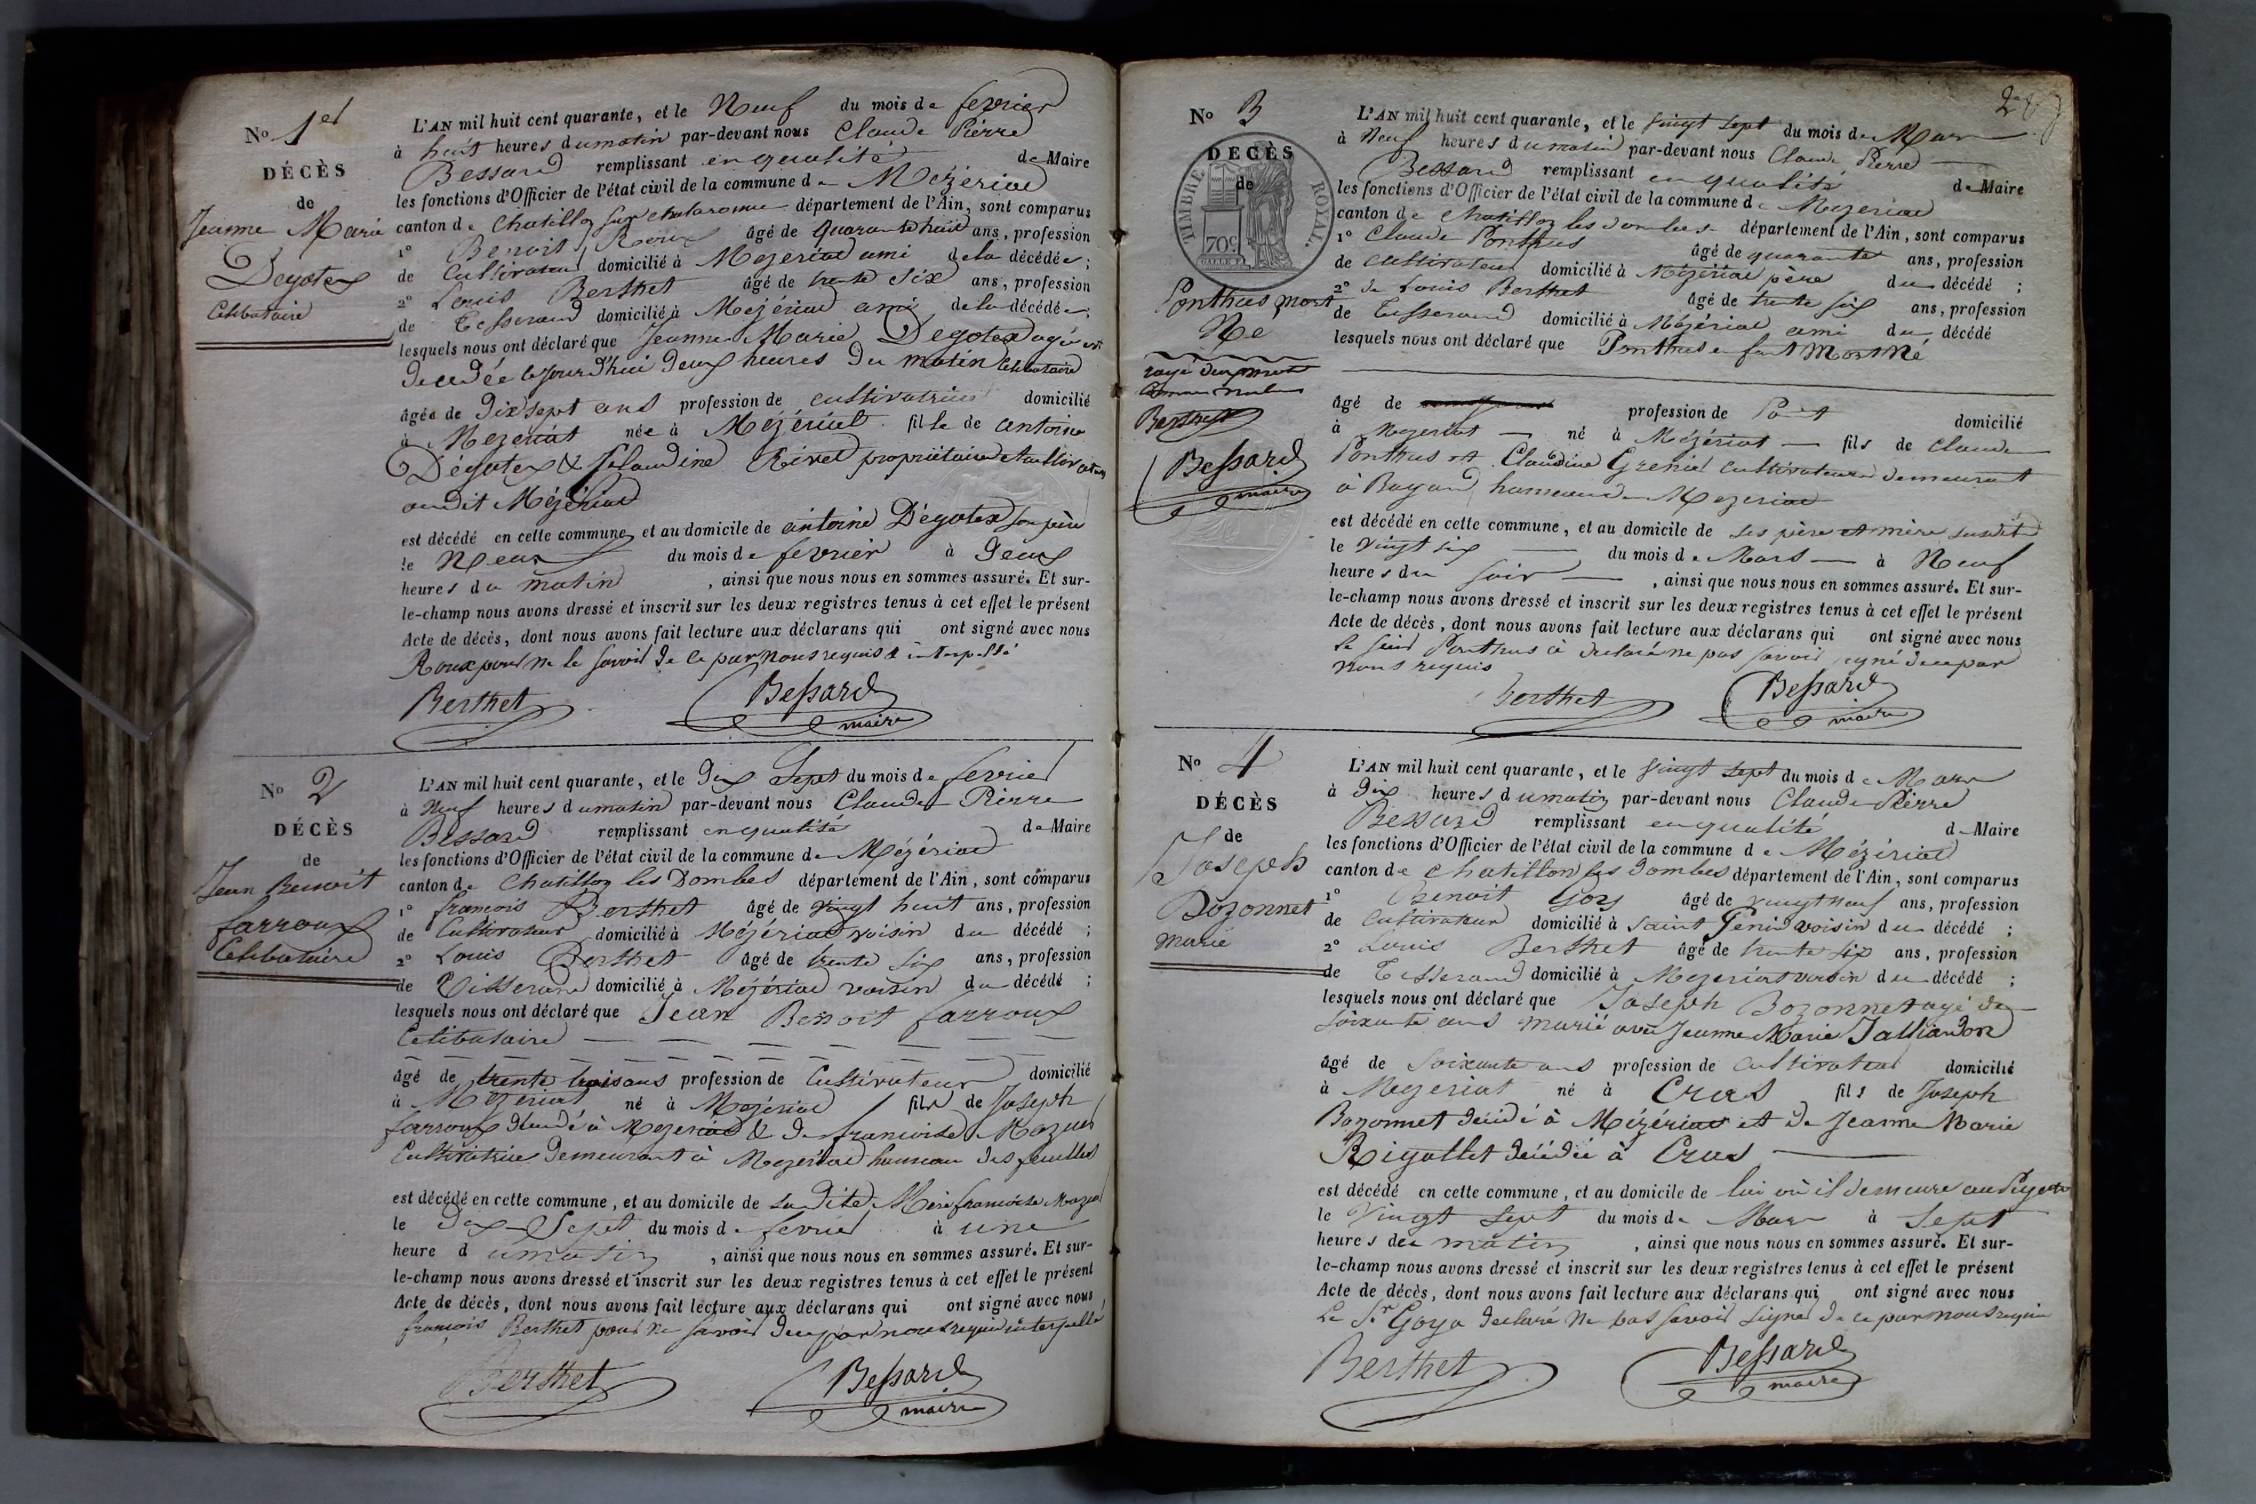 No 1er
DÉCÈS
de
Jeanne Marie
Degotex
Célibataire
L'AN mil huit cent quarante, et le Neuf du mois de fevrier
à huit heures du matin par-devant nous Claude Pierre
Bessard remplissant en qualité de Maire
les fonctions d'Officier de l'état civil de la commune de Mezériat
canton de Chatillon sur chalaronne département de l'Ain, sont comparus
1° Benoit Roux âgé de quarante huit ans, profession
de Cultivateur domicilié à Mezeriat ami de la décédée;
2° Louis Berthet âgé de trente six ans, profession
de Tisserand domicilié à Mezériat ami de la décédée,
lesquels nous ont déclaré que Jeanne Marie Degotex agée est
decedée le jourd'hui deux heures du matin Célibataire
âgée de Dix sept ans profession de cultivatrice domicilié
à Mezeriat née à Mézériat fille de antoine
Dégotex & Claudine Rivet propriétaire et cultivateur
audit Mézériat
est décédé en cette commune, et au domicile de antoine Dégotex son père
le Neuf du mois de fevrier à deux
heures du matin , ainsi que nous nous en sommes assuré. Et sur-
le-champ nous avons dressé et inscrit sur les deux registres tenus à cet effet le présent
Acte de décès, dont nous avons fait lecture aux déclarans qui ont signé avec nous
Roux pour ne le savoir de ce par nous requis & interpellé
Berthet Bessard
maire
No 2
DÉCÈS
de
Jean Benoit
farroux
Célibataire
L'AN mil huit cent quarante, et le dix Sept du mois de fevrier
à Neuf heures du matin par-devant nous Claude Pierre
Bessard remplissant en qualité de Maire
les fonctions d'Officier de l'état civil de la commune de Mézériat
canton de Chatillon les Dombes département de l'Ain, sont comparus
1° françois Berthet âgé de vingt huit ans, profession
de Cultivateur domicilié à Mézériat voisin du décédé ;
2° Louis Berthet âgé de trente six ans, profession
de Tisserand domicilié à Mézériat voisin du décédé ;
lesquels nous ont déclaré que Jean Benoit farroux
Celibataire
âgé de trente trois ans profession de Cultivateur domicilié
à Mézériat né à Mezériat fils de Joseph
farroux décédé à Mezeriat & de francoise Mazuer
Cultivatrice demeurant à Mezériat hameau des feuilles
est décédé en cette commune, et au domicile de sa dite Mère francoise Mazuer
le dix Sept du mois de fevrier à une
heure du matin , ainsi que nous nous en sommes assuré. Et sur-
le-champ nous avons dressé et inscrit sur les deux registres tenus à cet effet le présent
Acte de décès, dont nous avons fait lecture aux déclarans qui ont signé avec nous
françois Berthet pour ne savoir de ce par nous requis interpellé
Berthet Bessard
maire
No 3
DECÈS
de
TIMBRE ROYAL.
70c
Ponthus mort
Ne
rayé deux mots
comme nuls
Berthet
Bessard
maire
L'AN mil huit cent quarante, et le vingt sept du mois de Mars
à Neuf heures du matin par-devant nous Claude Pierre
Bessard remplissant en qualité de Maire
les fonctions d'Officier de l'état civil de la commune de Mezeriat
canton de Chatillon les dombes département de l'Ain, sont comparus
1° Claude Ponthus âgé de quarante ans, profession
de cultivateur domicilié à Mézériat père du décédé ;
2° de Louis Berthet âgé de trente six ans, profession
de Tisserand domicilié à Mézériat ami du décédé
lesquels nous ont déclaré que Ponthus enfant Mort Né
âgé de profession de domicilié
à Mezeriat né à Mézériat fils de Claude
Ponthus et Claudine Grenier cultivateurs demeurant
à hameau de Mezeriat
est décédé en cette commune, et au domicile de ses père et mère susdit
le vingt six du mois de Mars à Neuf
heures du soir , ainsi que nous nous en sommes assuré. Et sur-
le-champ nous avons dressé et inscrit sur les deux registres tenus à cet effet le présent
Acte de décès, dont nous avons fait lecture aux déclarans qui ont signé avec nous
le sieur Ponthus à declaré ne pas savoir signé de ce par
nous requis
Berthet Bessard
maire
No 4
DÉCÈS
de
Joseph
Bozonnet
marié
L'AN mil huit cent quarante, et le vingt sept du mois de Mars
à dix heures du matin par-devant nous Claude Pierre
Bessard remplissant en qualité de Maire
les fonctions d'Officier de l'état civil de la commune de Mézériat
canton de Chatillon les dombes département de l'Ain, sont comparus
1° Benoit Goy âgé de vingt neuf ans, profession
de Cultivateur domicilié à Saint Genis voisin du décédé ;
2° Louis Berthet âgé de trente six ans, profession
de Tisserand domicilié à Mezeriat voisin du décédé ;
lesquels nous ont déclaré que Joseph Bozonnet agé de
soixante ans marié avec Jeanne Marie
âgé de soixante ans profession de cultivateur domicilié
à Mezeriat né à Cras fils de Joseph
Bozonnet décédé à Mézériat et de Jeanne Marie
Rigollet décédée à Cras
est décédé en cette commune, et au domicile de lui où il demeure au
le Vingt sept du mois de Mars à sept
heures du matin , ainsi que nous nous en sommes assuré. Et sur-
le-champ nous avons dressé et inscrit sur les deux registres tenus à cet effet le présent
Acte de décès, dont nous avons fait lecture aux déclarans qui ont signé avec nous
Le Sr Goy a declaré ne pas savoir signer de ce par nous requis
Berthet Bessard
maire